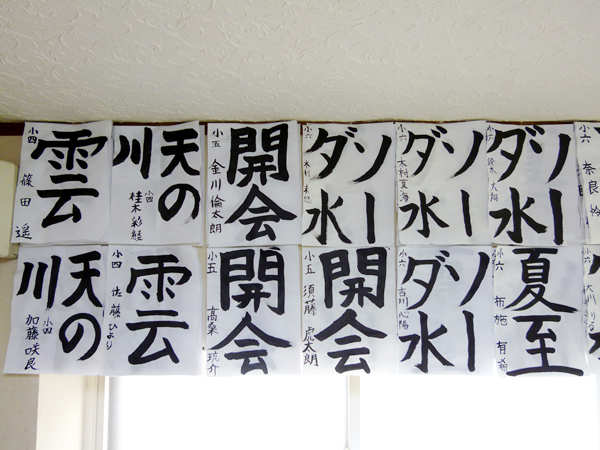 雲
小四
篠田 遥
天の
川
小四
桂木 彩結
開会
小五
金川倫太朗
ソー
ダ水
小六
ソー
ダ水
小六
木村夏海
ソー
ダ水
小六
鈴木大翔
小六
奈良
天の
川
小四
加藤咲良
雲
小四
佐藤ひより
開会
小五
高桑 琉介
開会
小五
須藤 虎太朗
ソー
ダ水
小六
古川心陽
夏至
小六
布施 有希